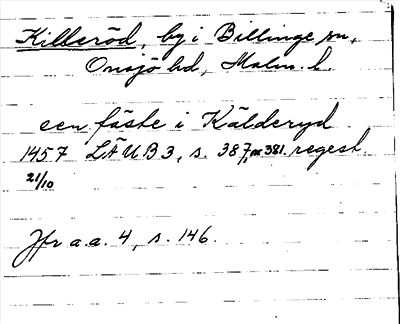 Killeröd, by i Billinge sn,
Onsjö hd, Malm. l.
een fäste i Kälderyd
1457 LÄUB 3, s. 387, nr 381. regest.
21/10
Jfr a.a. 4, s. 146.